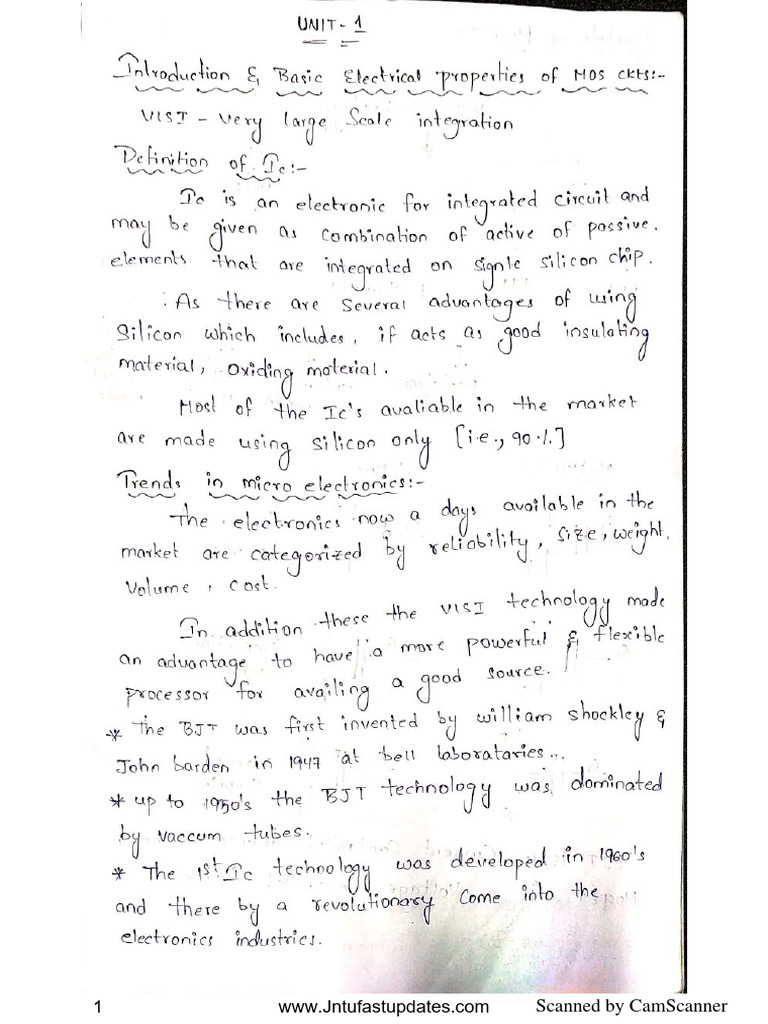 UNIT-1
Introduction & Basic Electrical properties of MOS CKTS:-
VLSI - Very large Scale integration
Definition of Ic:-
Ic is an electronic for integrated circuit and
may be given as combination of active of passive.
elements that are integrated on signle silicon chip.
As there are several advantages of using
silicon which includes, if acts as good insulating
material, oxiding material.
Most of the Ic's avaliable in the market
are made using silicon only [i.e., 90%]
Trends in micro electronics:-
The electronics now a days available in the
market are categorized by reliability, size, weight,
volume, cost.
In addition these the VLSI technology made
an advantage to have a more powerful & flexible
processor for availing a good source.
* The BJT was first invented by william shockley &
John barden in 1947 at bell laborataries...
* up to 1950's the BJT technology was dominated
by vaccum tubes.
* The 1st Ic technology was developed in 1960's
and there by a revolutionary come into the
electronics industries.
1 www.Jntufastupdates.com Scanned by CamScanner